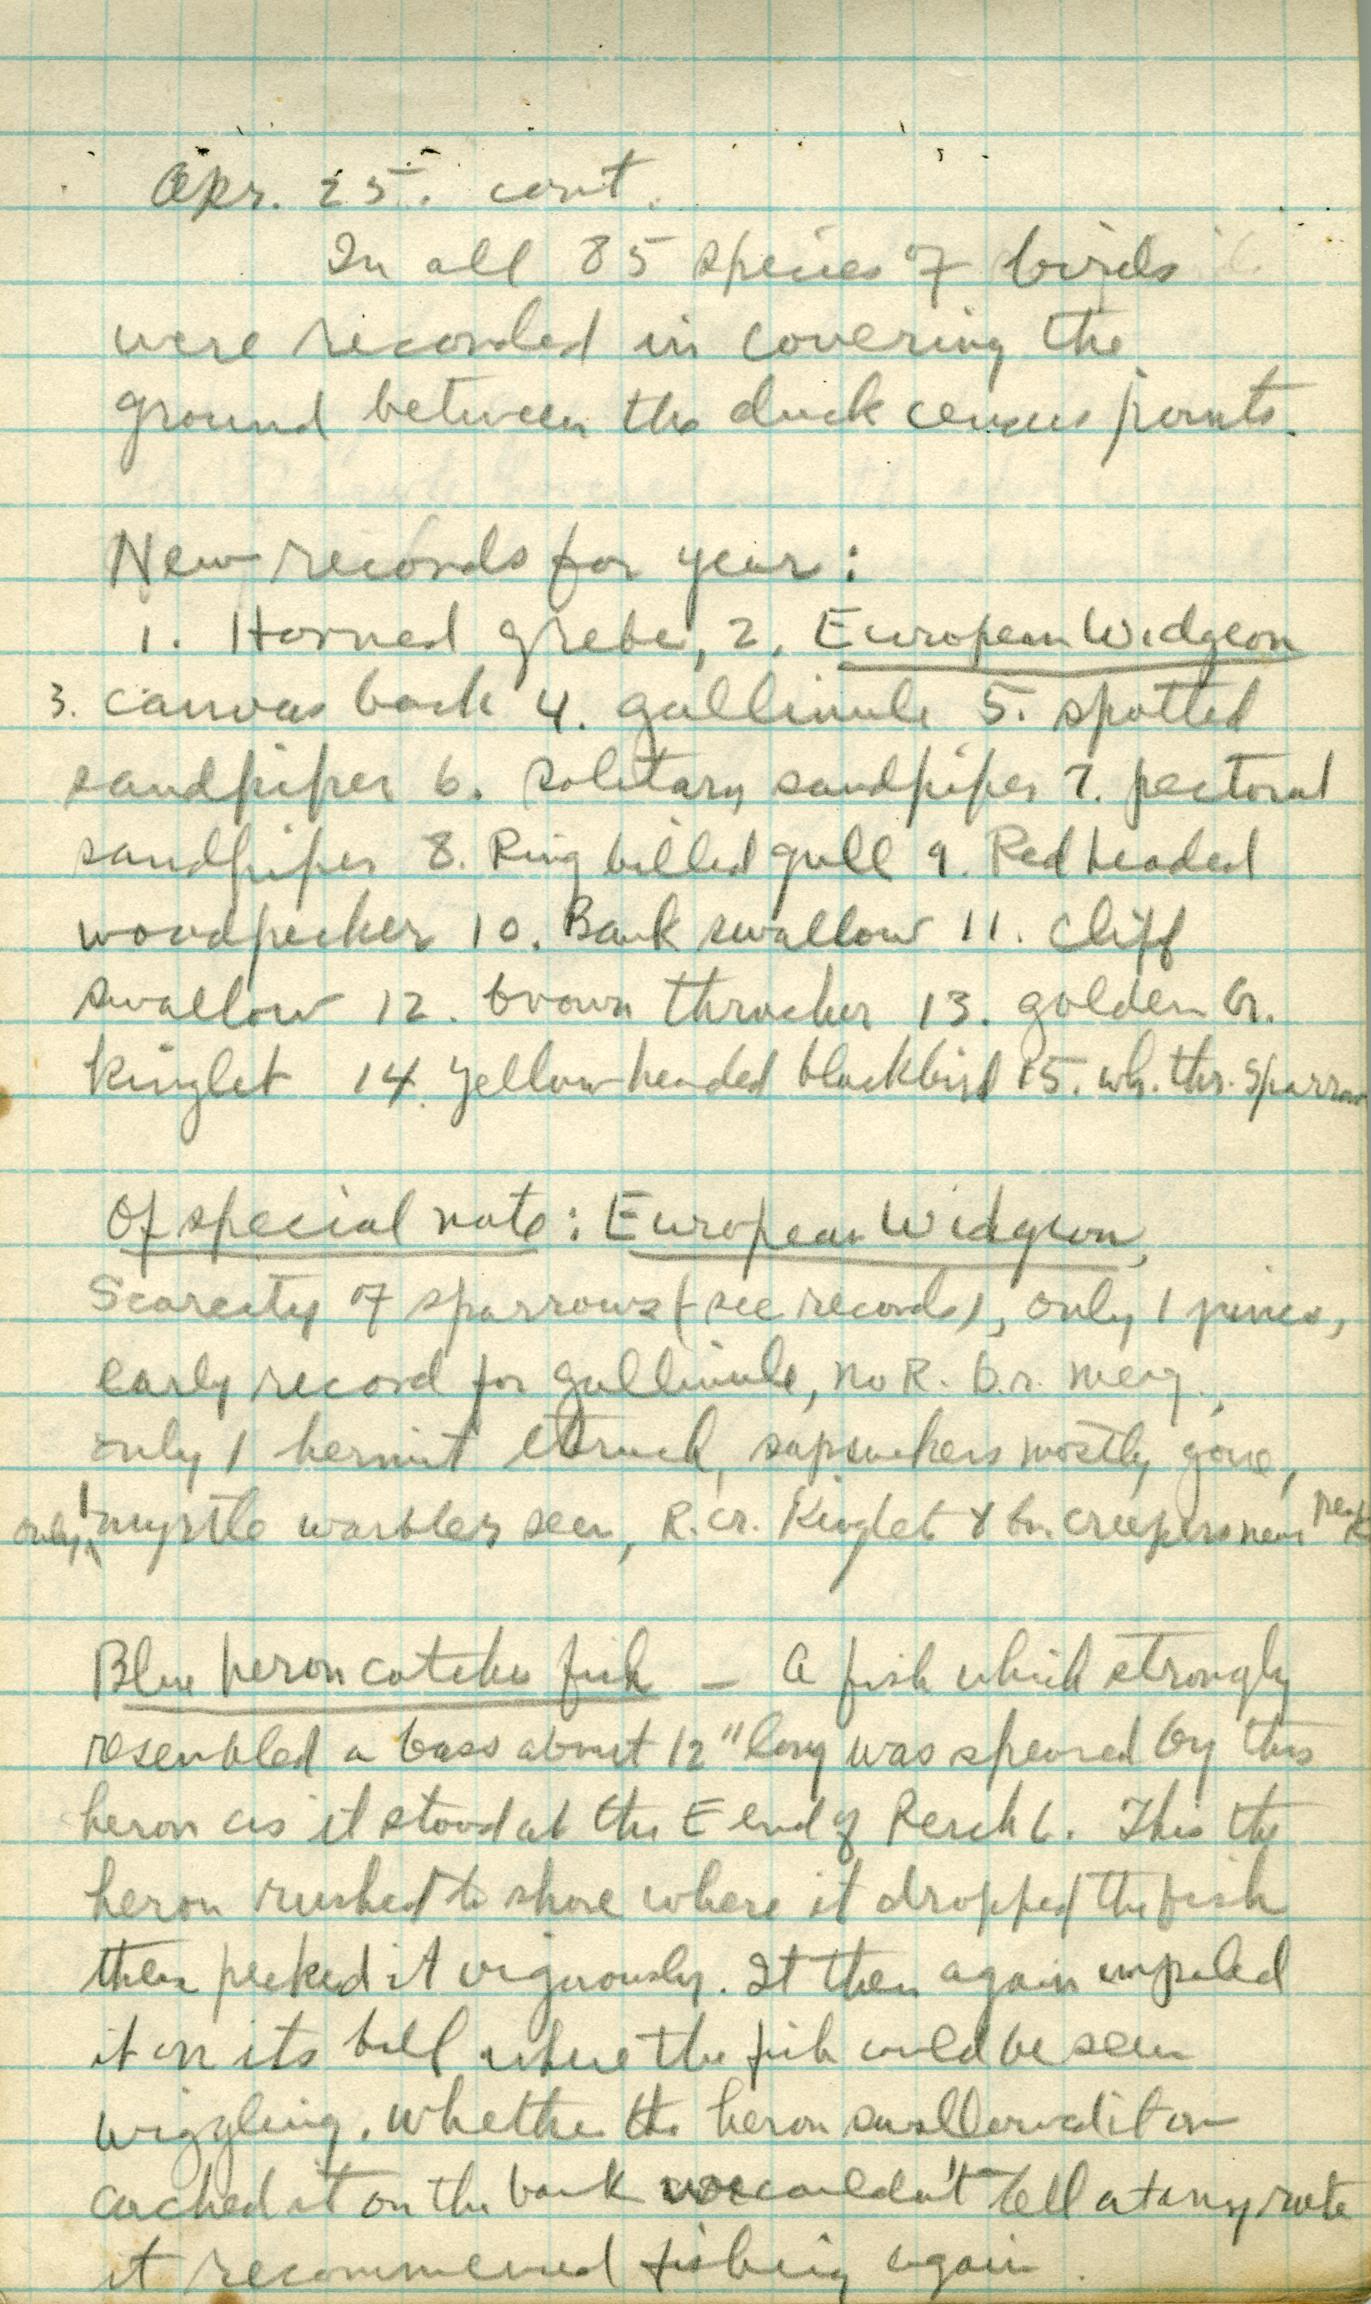 Apr. 25. cont.
In all 85 species of birds
were recorded in covering the
ground between the duck census points.
New records for year:
1. Horned grebe, 2. European Widgeon
3. canvas back 4. gallinule 5. spotted
sandpiper 6. solitary sandpiper 7. pectoral
sandpiper 8. Ring billed gull 9. Red headed
woodpecker 10. Bank swallow 11. Cliff
swallow 12. brown thrasher 13. golden cr.
kinglet 14. yellow headed blackbird 15. wh. thr. sparrow
Of special note: European Widgeon,
Scarcity of sparrows (see records), only 1 junco,
early record for gallinule, no R. br. merg.,
only 1 hermit thrush, sapsuckers mostly gone,
only 1 myrtle warbler seen, R. cr. Kinglet & br. creepers near peak
Blue heron catches fish - A fish which strongly
resembled a bass about 12" long was speared by this
heron as it stood at the E end of Perch L. This the
heron rushed to shore where it dropped the fish
then pecked it vigorously. It then again impaled
it on its bill where the fish could be seen
wiggling. Whether the heron swallowed it or
cached it on the bank we couldn't tell at any rate
it recommenced fishing again.